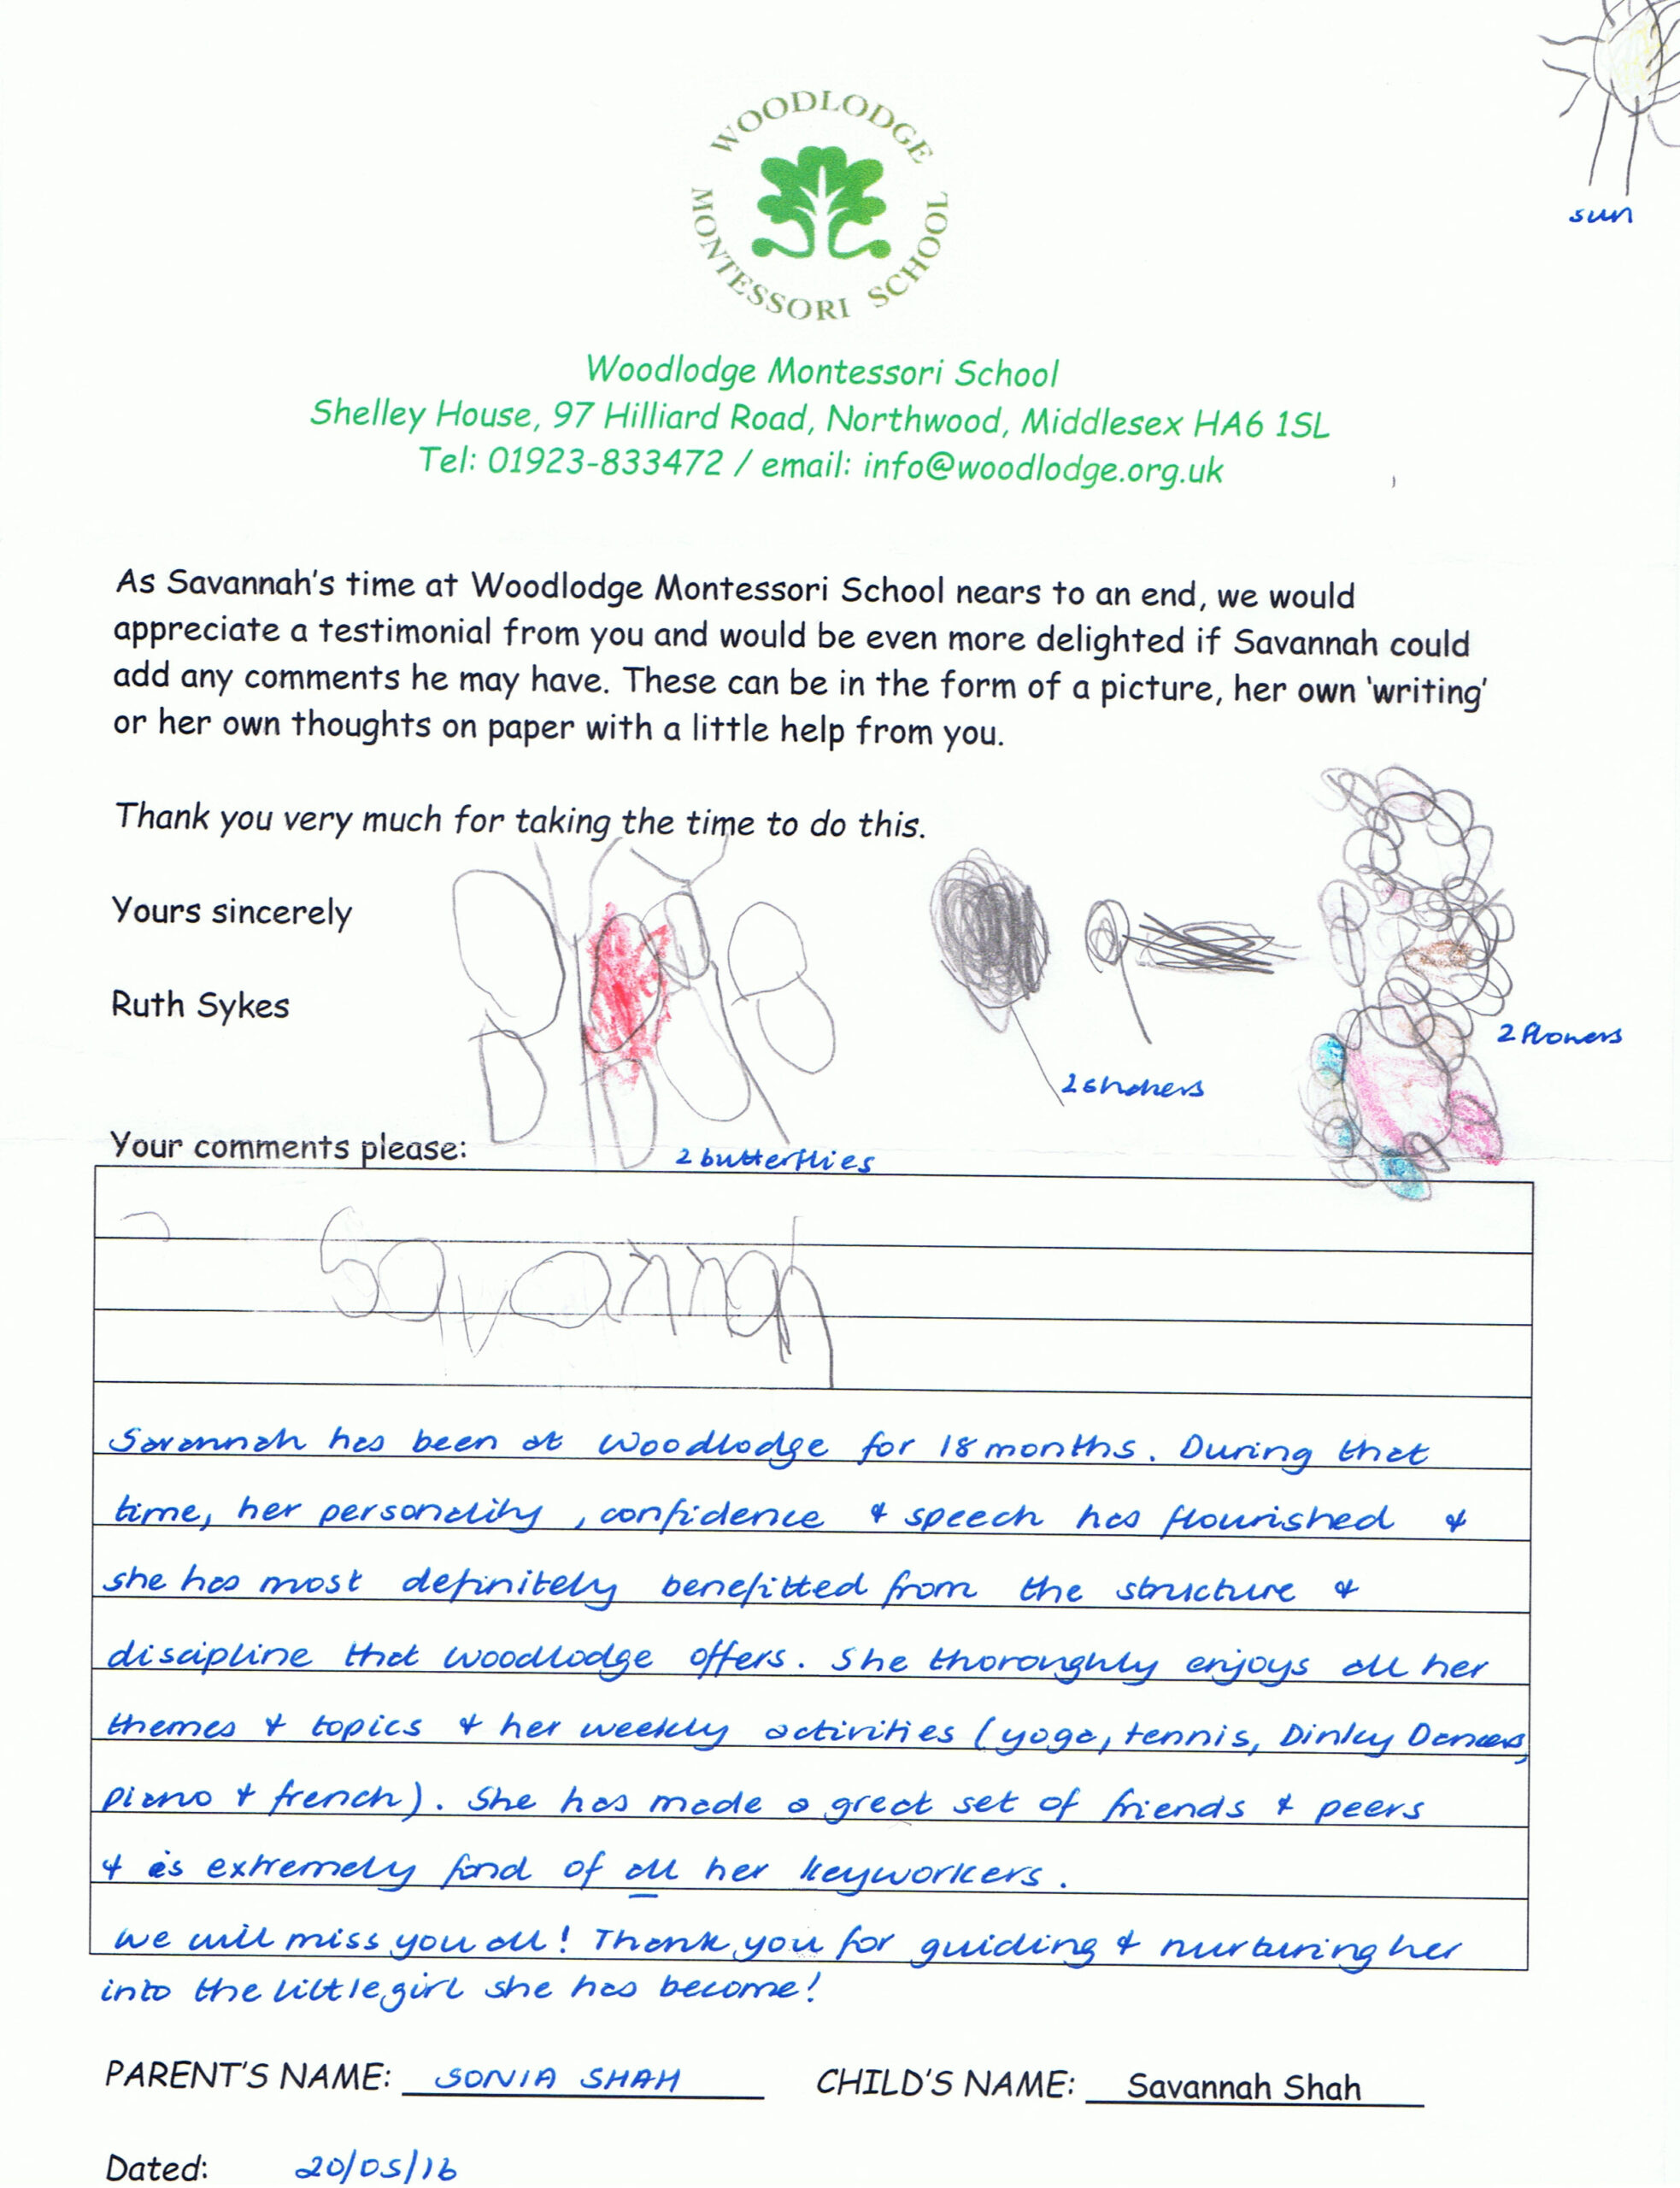 WOODLODGE
MONTESSORI SCHOOL
sun
Woodlodge Montessori School
Shelley House, 97 Hilliard Road, Northwood, Middlesex HA6 1SL
Tel: 01923-833472 / email: info@woodlodge.org.uk
As Savannah's time at Woodlodge Montessori School nears to an end, we would
appreciate a testimonial from you and would be even more delighted if Savannah could
add any comments he may have. These can be in the form of a picture, her own 'writing'
or her own thoughts on paper with a little help from you.
Thank you very much for taking the time to do this.
Yours sincerely
Ruth Sykes
2 flowers
2
Your comments please:
2 butterflies
Savannah
Savannah has been at Woodlodge for 18 months. During that
time, her personality, confidence & speech has flourished &
she has most definitely benefitted from the structure &
discipline that Woodlodge offers. She thoroughly enjoys all her
themes & topics & her weekly activities (yoga, tennis, Dinky Dancers,
piano & french). She has made a great set of friends & peers
& is extremely fond of all her keyworkers.
We will miss you all! Thank you for guiding & nurturing her
into the little girl she has become!
PARENT'S NAME: SONIA SHAH CHILD'S NAME: Savannah Shah
Dated: 20/05/16